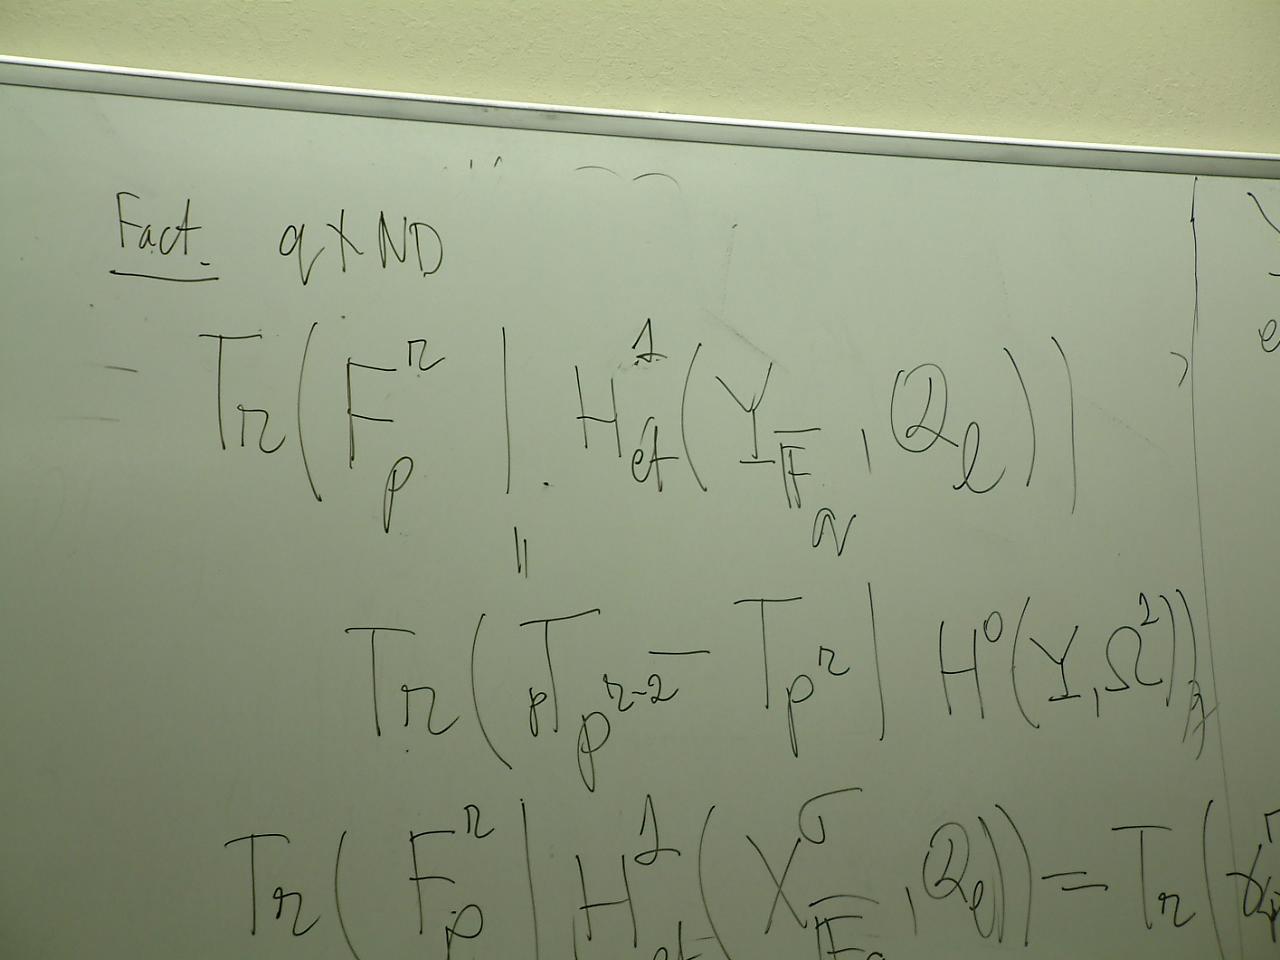 Fact. q ∤ ND
Tr(F_p^r | H^1_et(Y_{\overline{F}_q}, Q_l))
||
Tr(pT_{p^{r-2}} - T_{p^r} | H^0(Y, Ω^1))
Tr(F_p^r | H^1_et(X^σ_{\overline{F}_q}, Q_l)) = Tr(